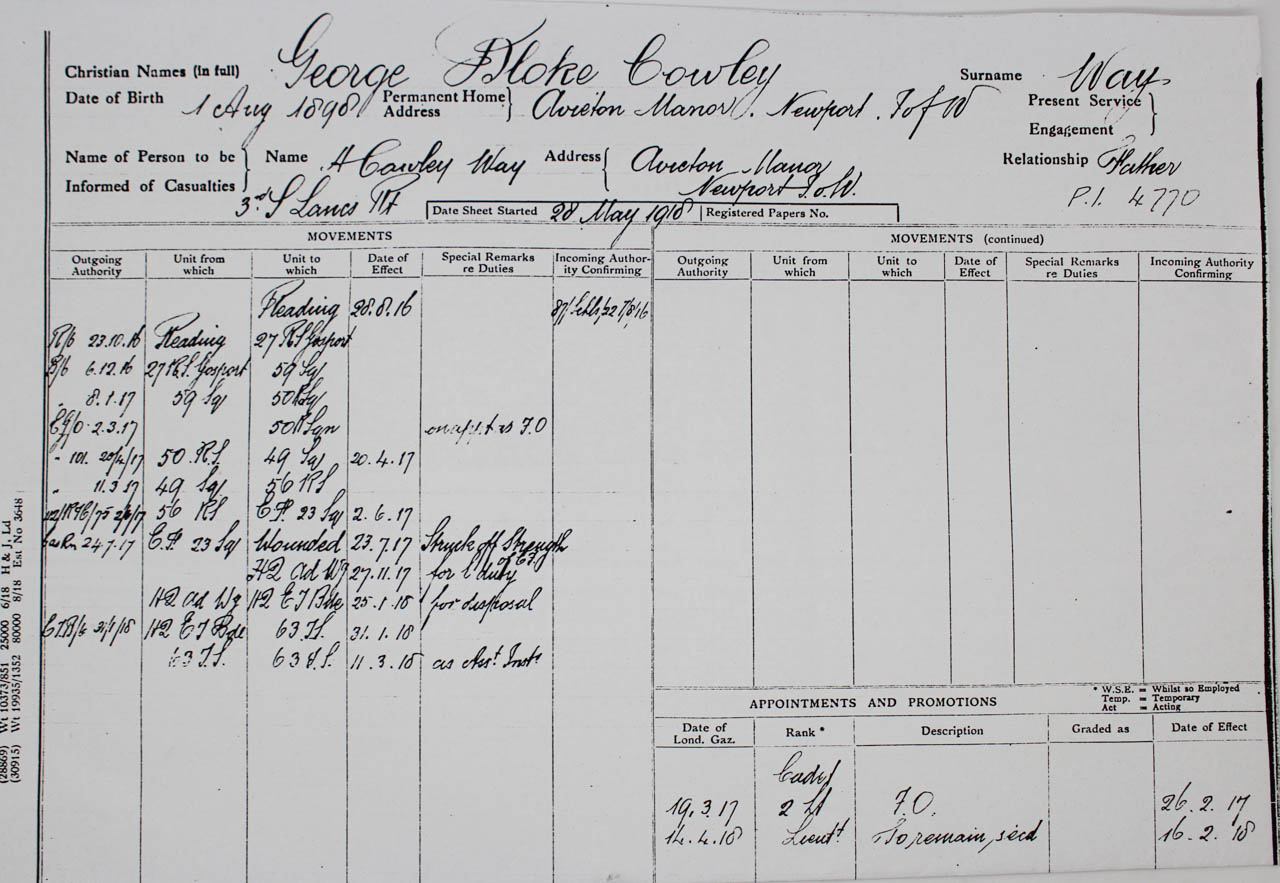 Christian Names (in full) George Bloke Cowley Surname Way
Date of Birth 1 Aug 1898 Permanent Home Address } Avieton Manor. Newport. I of W Present Service Engagement }
Name of Person to be Informed of Casualties } Name A Cowley Way Address { Avieton Manor Newport I.o.W. Relationship Father
3rd S Lancs Rt P.I. 4770
Date Sheet Started 28 May 1918 Registered Papers No.
MOVEMENTS
Outgoing Authority Unit from which Unit to which Date of Effect Special Remarks re Duties Incoming Authority Confirming
Reading 28.8.16
R/6 23.10.16 Reading 27 RS Gosport
B/6 6.12.16 27 R.S. Gosport 59 Sq
" 8.1.17 59 Sq 50 R Sq
2.3.17 50 R Sqn on appt as F.O
" 101. 20/4/17 50 R.S 49 Sq 20.4.17
" 11.3.17 49 Sq 56 RS
56 RS E.F. 23 Sq 2.6.17
Cas Rn 24.7.17 E.F. 23 Sq Wounded 23.7.17 Struck off Strength of E.F.
HQ ad Wg 27.11.17 for l duty
HQ ad Wg HQ E T Bde 25.1.18 for disposal
31/1/18 HQ E T Bde 63 T.S. 31.1.18
63 T.S. 63 T.S. 11.3.18 as Asst Instr
MOVEMENTS (continued)
Outgoing Authority Unit from which Unit to which Date of Effect Special Remarks re Duties Incoming Authority Confirming
* W.S.E. = Whilst so Employed
Temp. = Temporary
Act = Acting
APPOINTMENTS AND PROMOTIONS
Date of Lond. Gaz. Rank * Description Graded as Date of Effect
Cadet
19.3.17 2 Lt F.O. 26.2.17
14.4.18 Lieut To remain secd 16.2.18
(28869) Wt 10373/851 25000 6/18 H & J, Ld
(30915) Wt 19935/1352 80000 8/18 Est No 3648